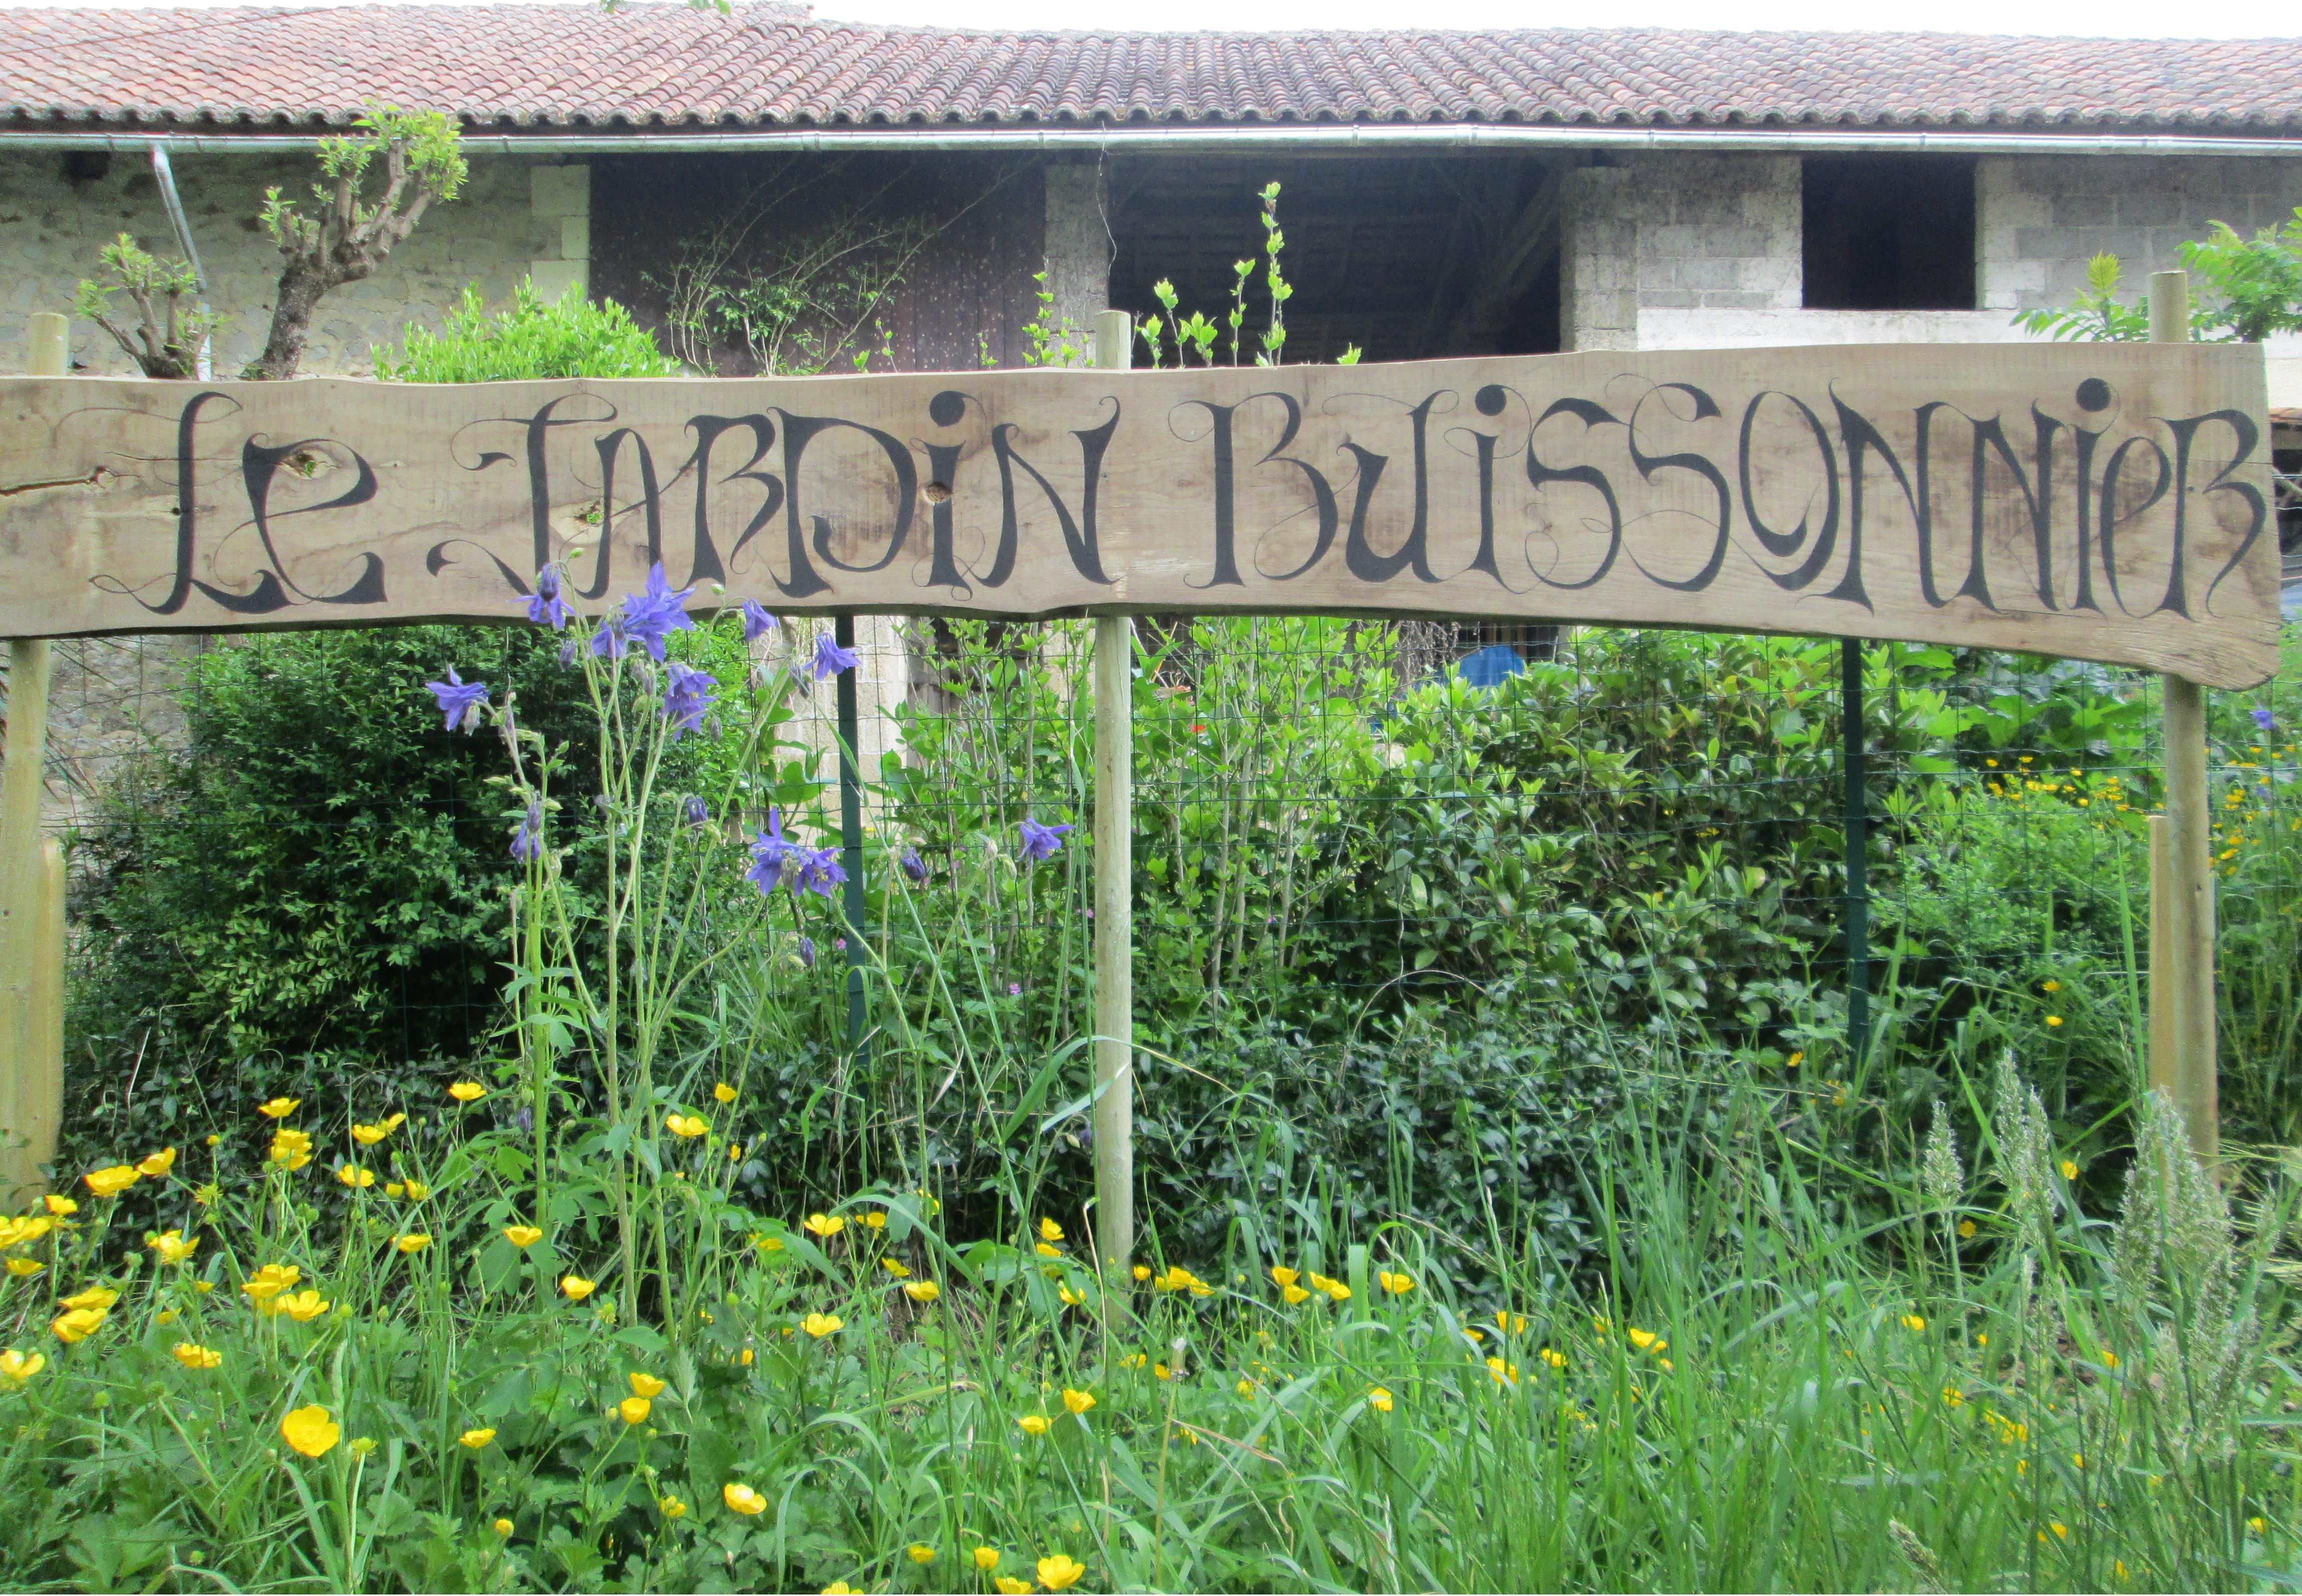 Le Jardin Buissonnier